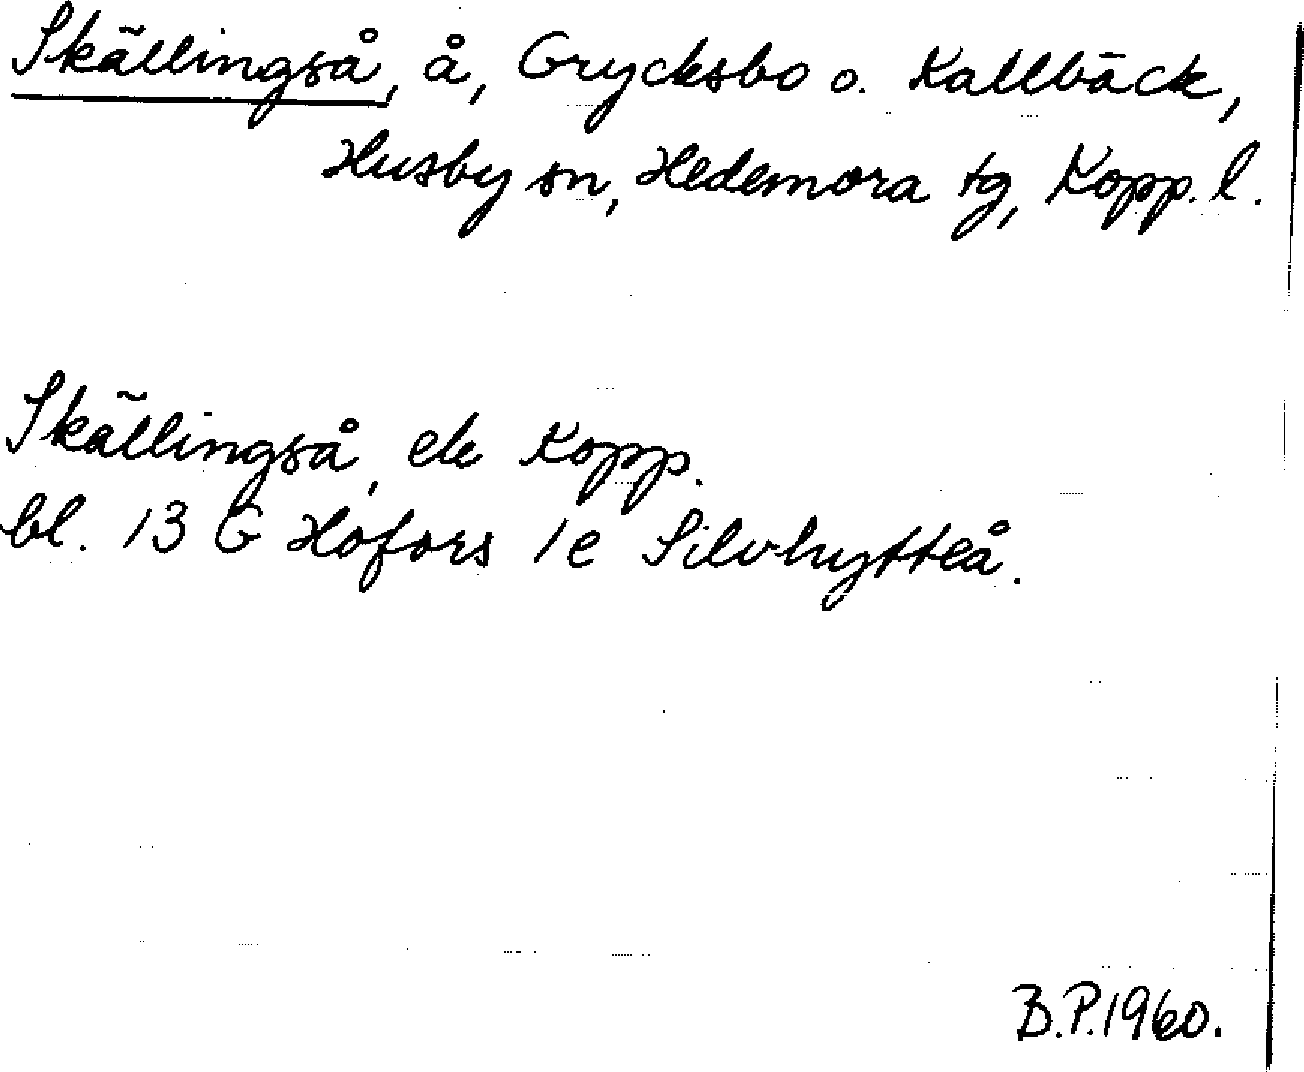 Skällingså, å, Grycksbo o. Kallbäck,
Husby sn, Hedemora tg, Kopp. l.
Skällingså, ek Kopp.
bl. 13 G Hofors 1e Silvhytteå.
B.P. 1960.